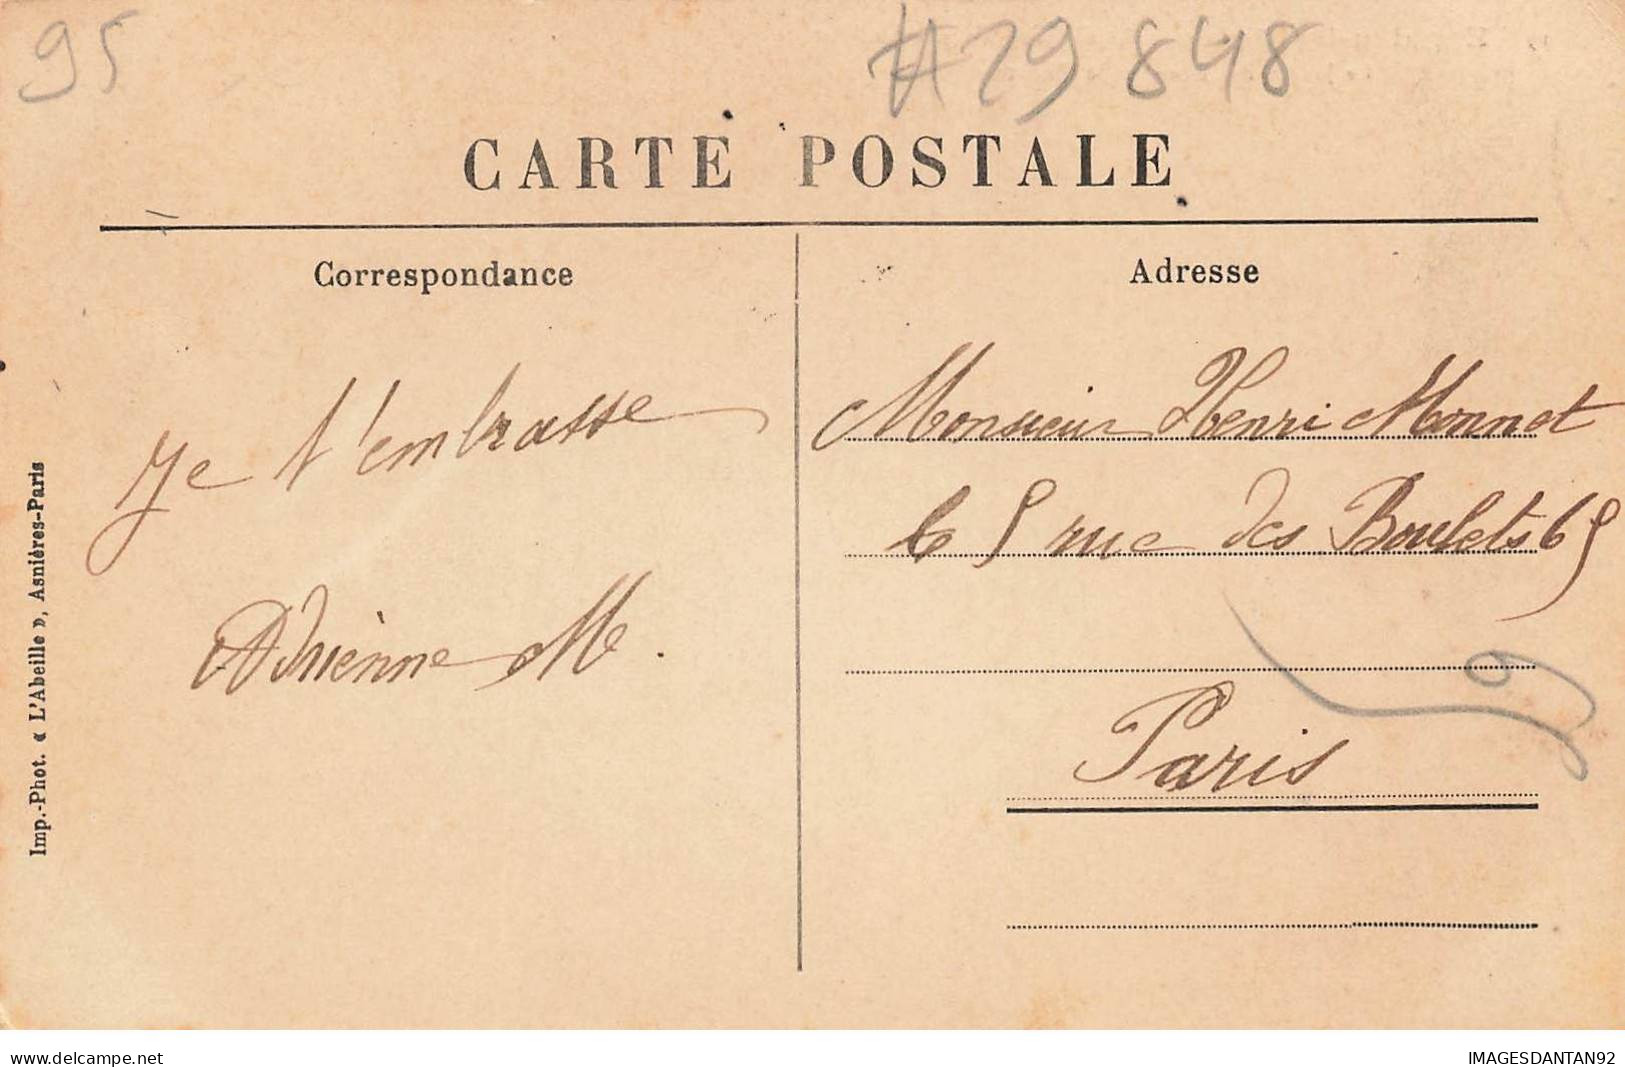 95
#29 848
CARTE POSTALE
Correspondance
Adresse
Je t'embrasse
Adrienne M.
Monsieur Henri Monnot
65 rue des Boulets 65
Paris
Imp.-Phot. « L'Abeille », Asnières-Paris
www.delcampe.net
IMAGESDANTAN92